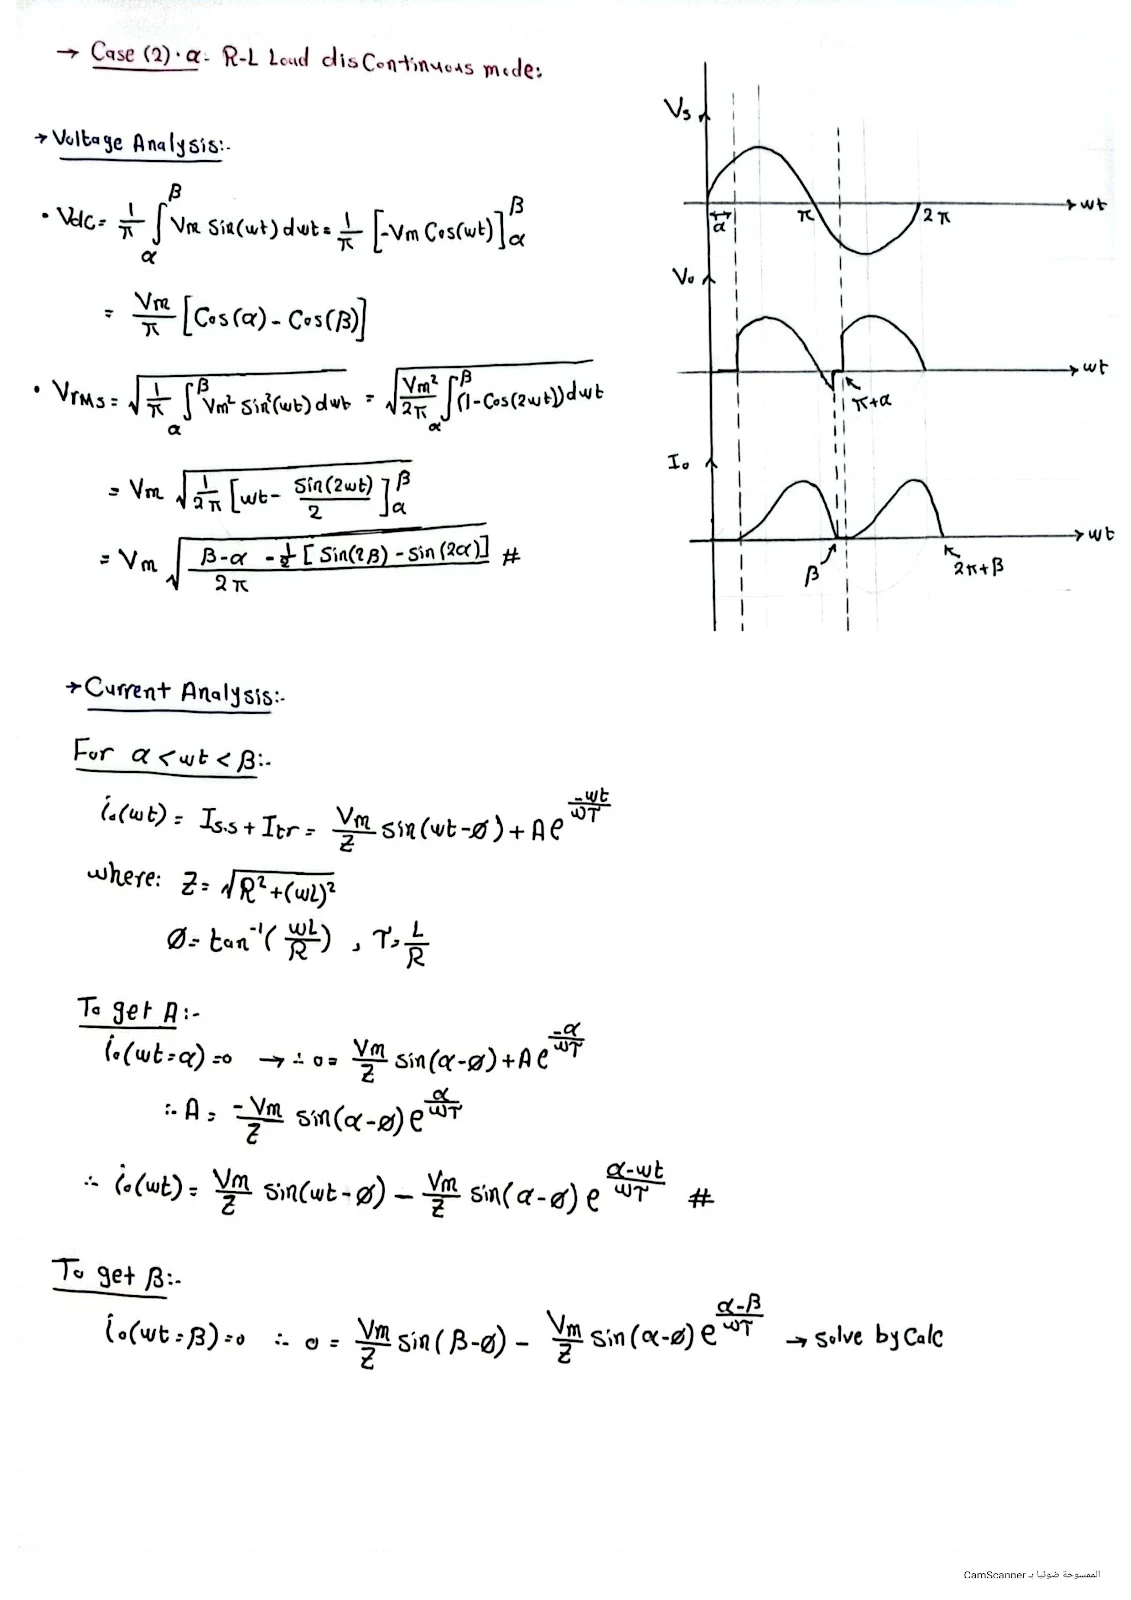 → Case (2)·a: R-L Load disContinuous mode:
→ Voltage Analysis:-
• Vdc = 1/π ∫_α^β Vm Sin(wt) dwt = 1/π [-Vm Cos(wt)]_α^β
= Vm/π [Cos(α) - Cos(β)]
• VrMs = √(1/π ∫_α^β Vm² Sin²(wt) dwt) = √(Vm²/2π ∫_α^β (1-Cos(2wt)) dwt)
= Vm √(1/2π [wt - Sin(2wt)/2]_α^β)
= Vm √((β-α -½ [Sin(2β) - Sin(2α)])/2π) #
Vs
wt
α
π
2π
Vo
wt
π+α
Io
wt
β
2π+β
→ Current Analysis:-
For α < wt < β:-
io(wt) = Is.s + Itr = Vm/Z sin(wt-ø) + A e^(-wt/wτ)
where: Z = √(R²+(wL)²)
Ø = tan⁻¹(wL/R) , τ = L/R
To get A:-
io(wt=α) = 0 → ∴ 0 = Vm/Z sin(α-ø) + A e^(-α/wτ)
∴ A = -Vm/Z sin(α-ø) e^(α/wτ)
∴ io(wt) = Vm/Z sin(wt-ø) - Vm/Z sin(α-ø) e^((α-wt)/wτ) #
To get β:-
io(wt=β) = 0 ∴ 0 = Vm/Z sin(β-ø) - Vm/Z sin(α-ø) e^((α-β)/wτ) → solve by Calc
الممسوحة ضوئيا بـ CamScanner